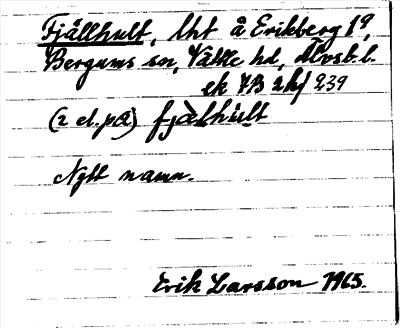 Fjällhult, lht å Erikberg 1⁹,
Bergums sn, Vättle hd, Älvsb. l.
ek 7B 2h/ 239
(2 el. på) fjälhult
Nytt namn.
Erik Larsson 1965.